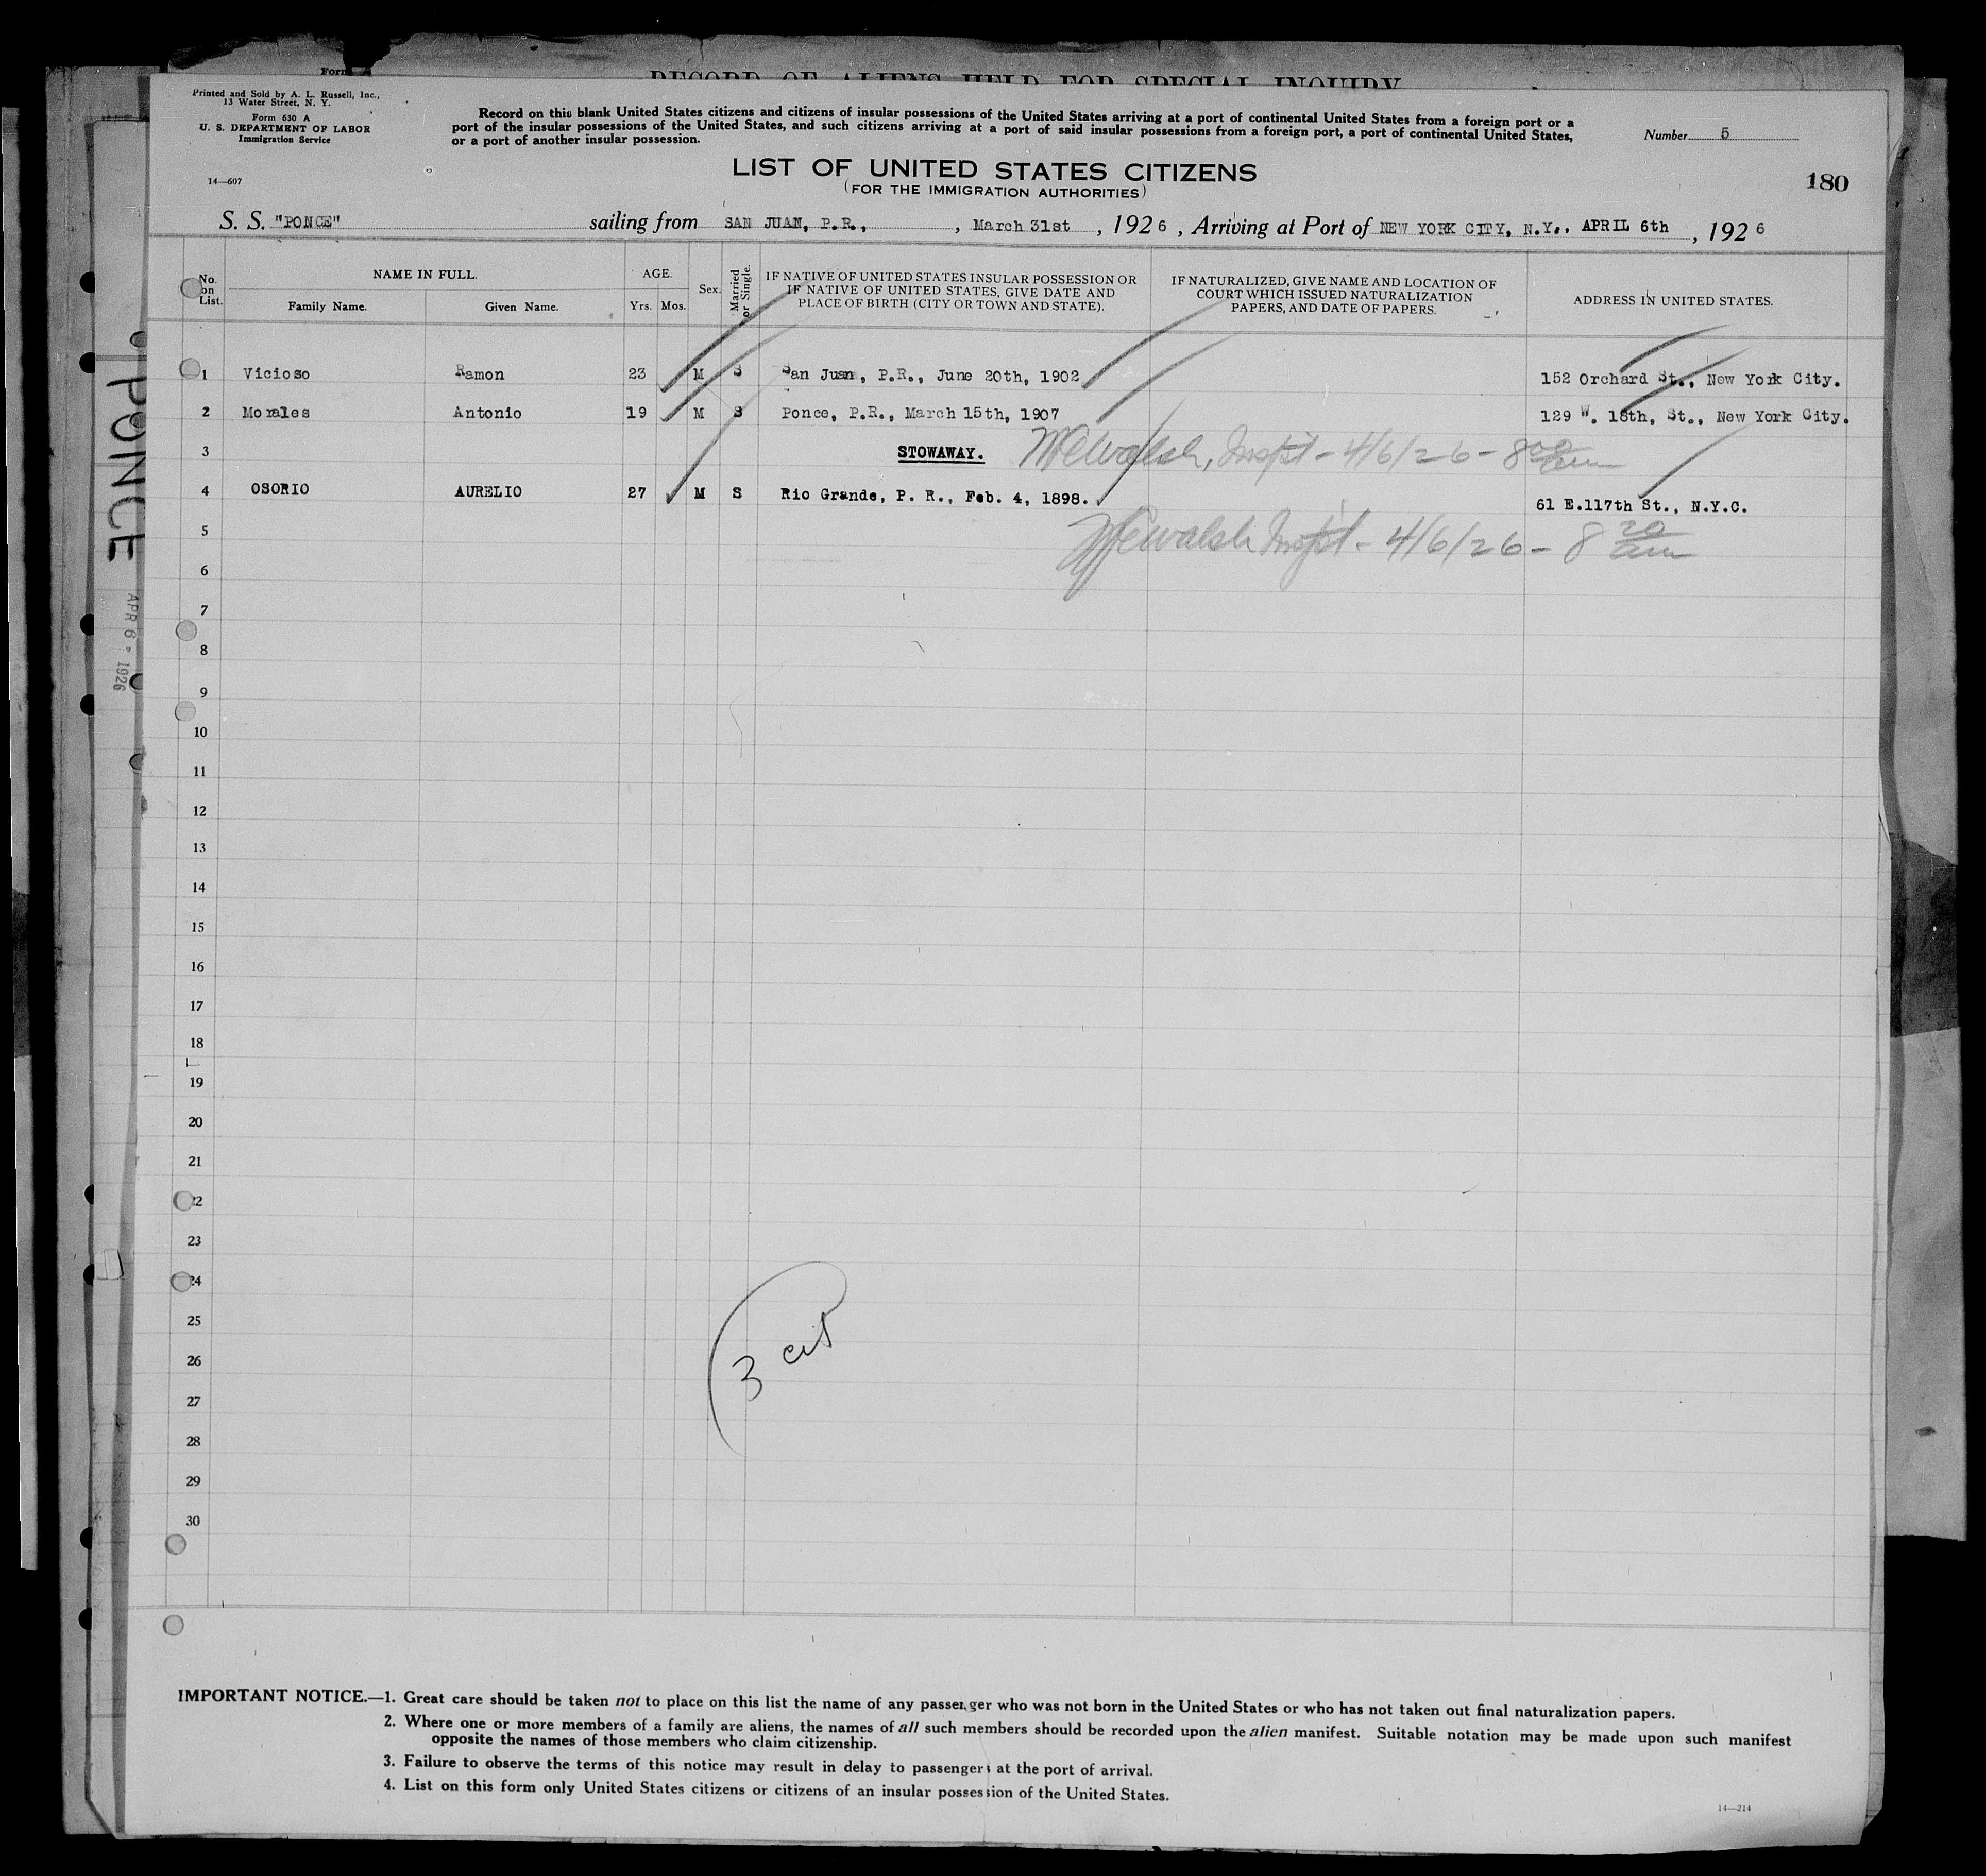 Form
RECORD OF ALIENS HELD FOR SPECIAL INQUIRY
Printed and Sold by A. L. Russell, Inc.,
13 Water Street, N. Y.
Form 630 A
U. S. DEPARTMENT OF LABOR
Immigration Service
14—607
Record on this blank United States citizens and citizens of insular possessions of the United States arriving at a port of continental United States from a foreign port or a
port of the insular possessions of the United States, and such citizens arriving at a port of said insular possessions from a foreign port, a port of continental United States,
or a port of another insular possession.
Number 5
LIST OF UNITED STATES CITIZENS
(FOR THE IMMIGRATION AUTHORITIES)
180
S. S. "PONCE" sailing from SAN JUAN, P.R., , March 31st , 1926 , Arriving at Port of NEW YORK CITY, N.Y.. APRIL 6th , 1926
No. on List.
NAME IN FULL.
Family Name. Given Name.
AGE.
Yrs. Mos.
Sex.
Married or Single.
IF NATIVE OF UNITED STATES INSULAR POSSESSION OR
IF NATIVE OF UNITED STATES, GIVE DATE AND
PLACE OF BIRTH (CITY OR TOWN AND STATE).
IF NATURALIZED, GIVE NAME AND LOCATION OF
COURT WHICH ISSUED NATURALIZATION
PAPERS, AND DATE OF PAPERS.
ADDRESS IN UNITED STATES.
1 Vicioso Ramon 23 M S San Juan, P.R., June 20th, 1902 152 Orchard St., New York City.
2 Morales Antonio 19 M S Ponce, P.R., March 15th, 1907 129 W. 18th, St., New York City.
3 STOWAWAY. Walsh, Inspt - 4/6/26 - 8 00 am
4 OSORIO AURELIO 27 M S Rio Grande, P. R., Feb. 4, 1898. 61 E.117th St., N.Y.C.
5 Walsh Inspt - 4/6/26 - 8 20 am
6
7
8
9
10
11
12
13
14
15
16
17
18
19
20
21
22
23
24
25
26
27
28
29
30
3 cit
PONCE
APR 6 - 1926
IMPORTANT NOTICE.—1. Great care should be taken not to place on this list the name of any passenger who was not born in the United States or who has not taken out final naturalization papers.
2. Where one or more members of a family are aliens, the names of all such members should be recorded upon the alien manifest. Suitable notation may be made upon such manifest
opposite the names of those members who claim citizenship.
3. Failure to observe the terms of this notice may result in delay to passengers at the port of arrival.
4. List on this form only United States citizens or citizens of an insular possession of the United States.
14—214